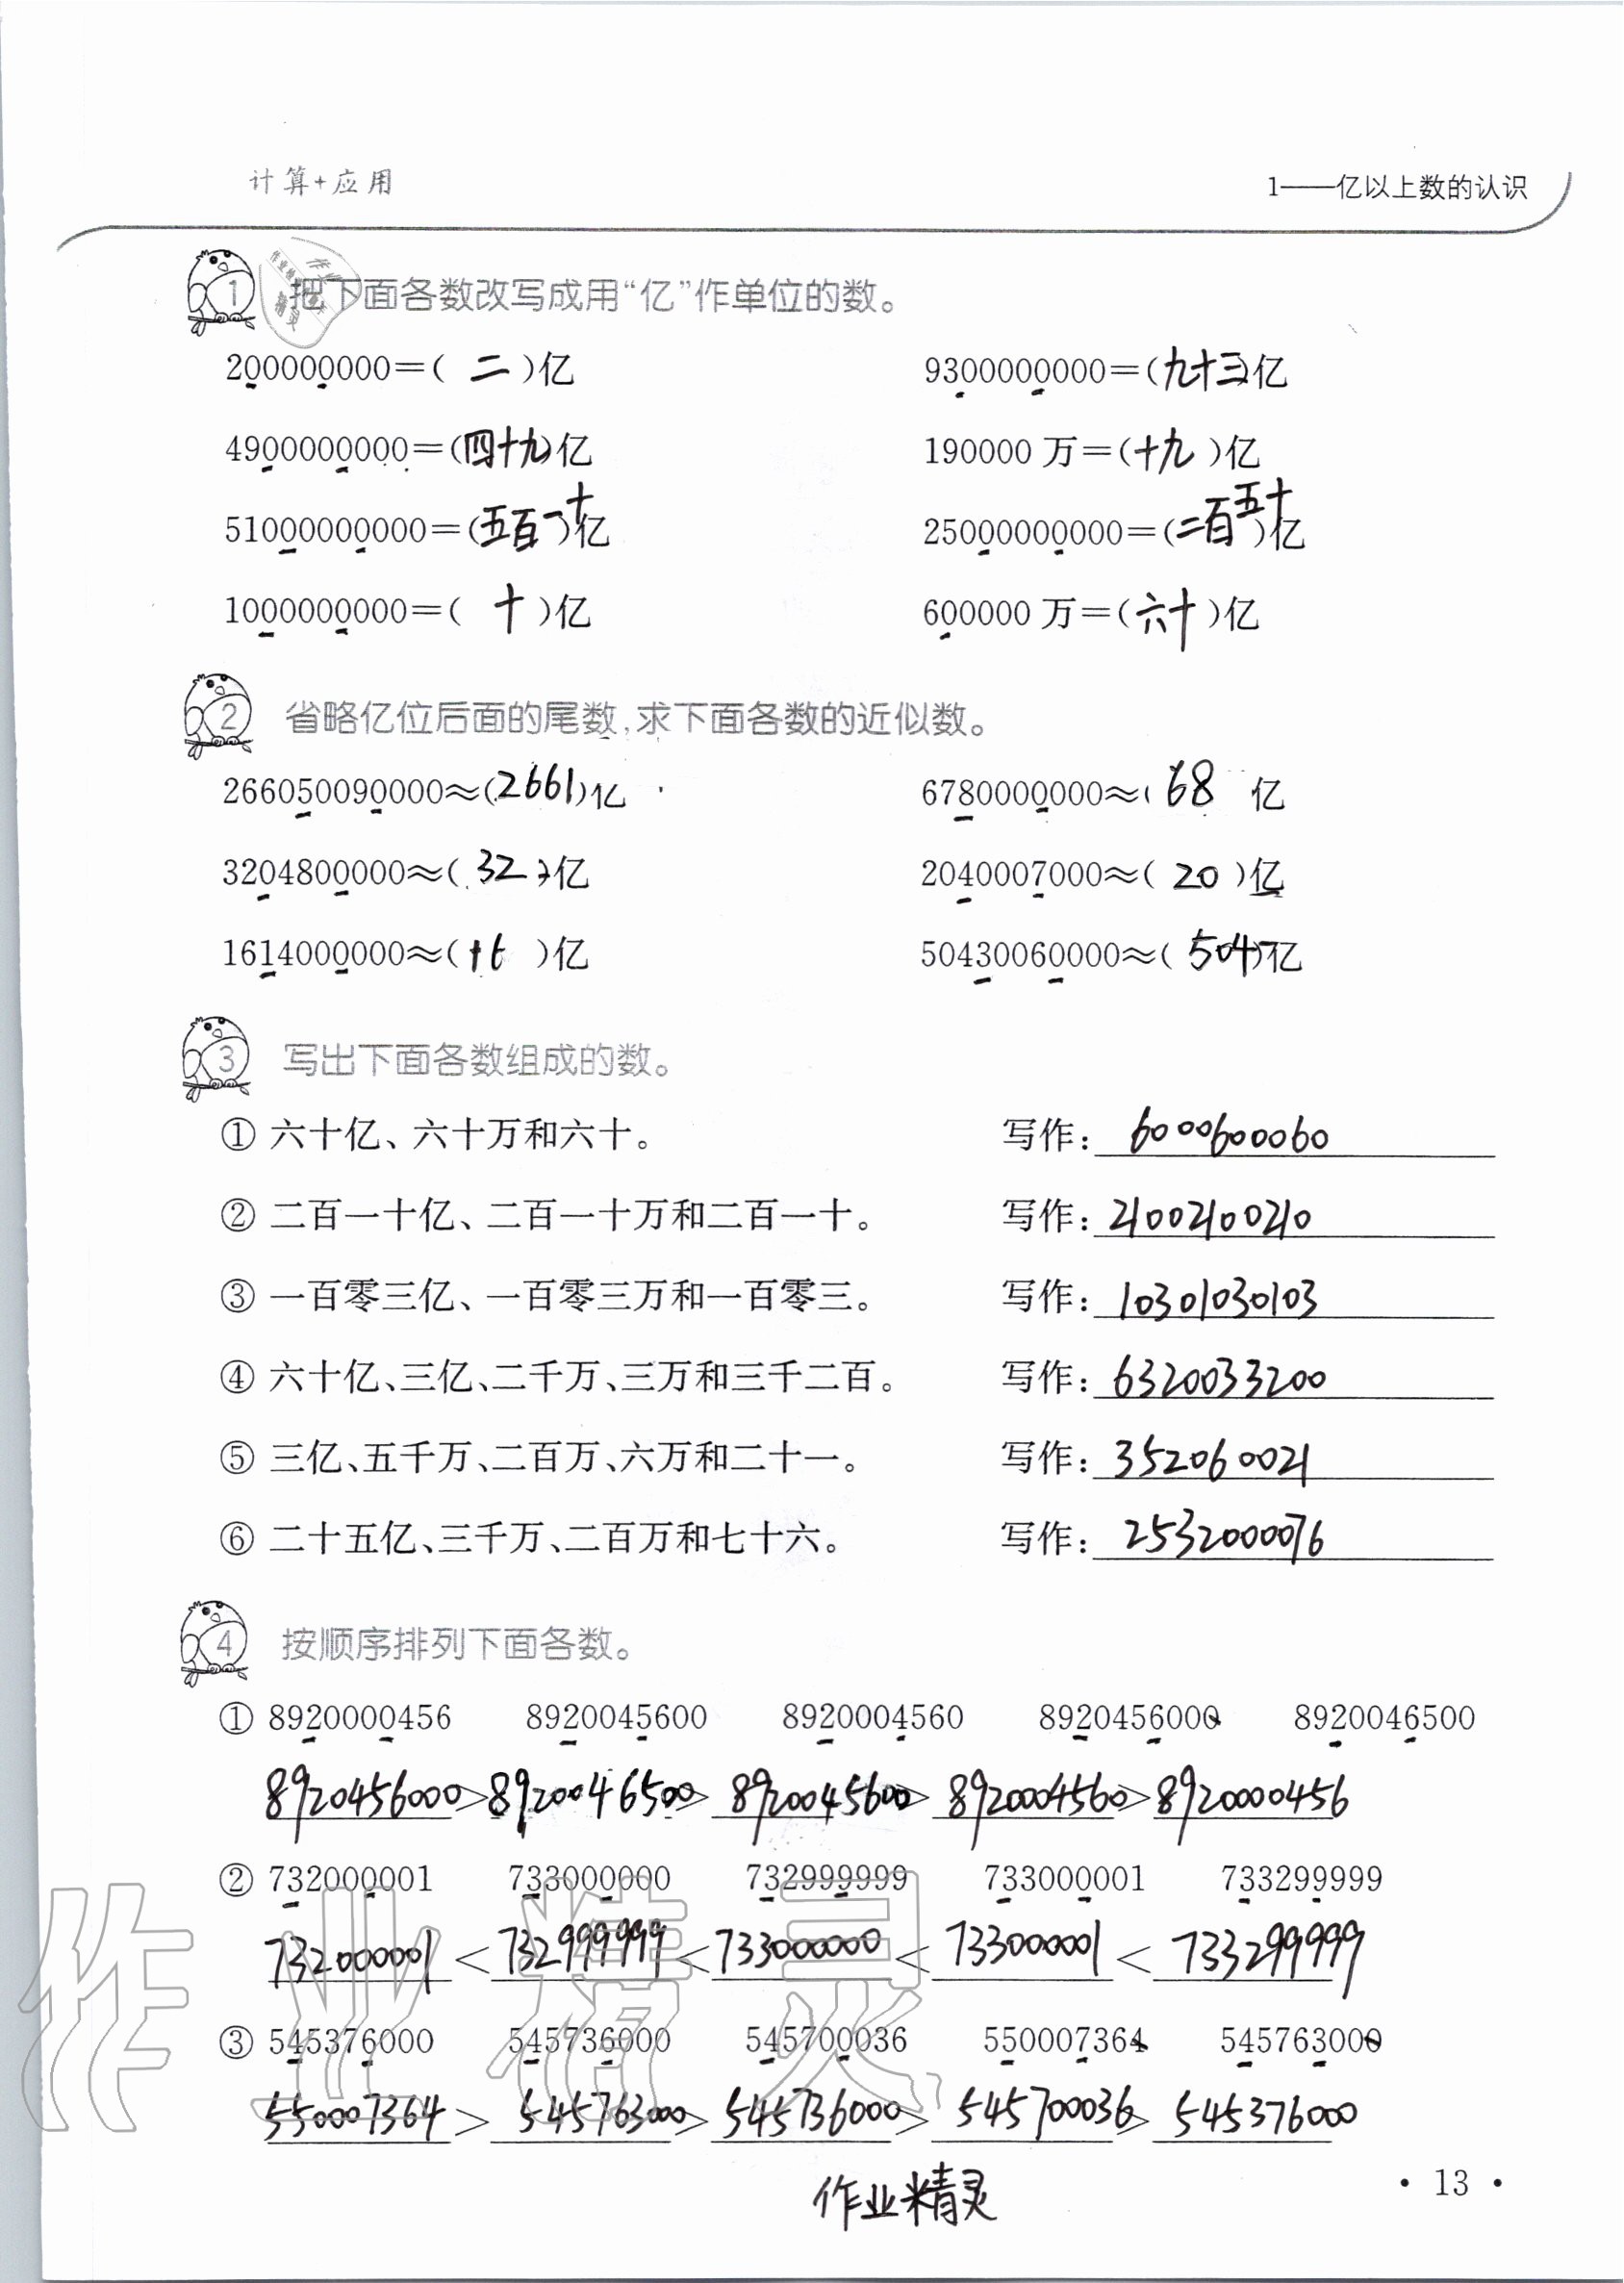 计算+应用 1——亿以上数的认识
1 把下面各数改写成用“亿”作单位的数。
200000000=( 二 )亿 9300000000=(九十三)亿
4900000000=(四十九)亿 190000万=(十九)亿
51000000000=(五百一十)亿 25000000000=(二百五十)亿
1000000000=( 十 )亿 600000万=(六十)亿
2 省略亿位后面的尾数,求下面各数的近似数。
266050090000≈(2661)亿 6780000000≈( 68 亿
3204800000≈( 32 )亿 2040007000≈( 20 )亿
1614000000≈( 16 )亿 50430060000≈( 504 )亿
3 写出下面各数组成的数。
① 六十亿、六十万和六十。 写作: 6000600060
② 二百一十亿、二百一十万和二百一十。 写作: 2100210210
③ 一百零三亿、一百零三万和一百零三。 写作: 10301030103
④ 六十亿、三亿、二千万、三万和三千二百。 写作: 6320033200
⑤ 三亿、五千万、二百万、六万和二十一。 写作: 352060021
⑥ 二十五亿、三千万、二百万和七十六。 写作: 2532000076
4 按顺序排列下面各数。
① 8920000456 8920045600 8920004560 8920456000 8920046500
8920456000>8920046500>8920045600>8920004560>8920000456
② 732000001 733000000 732999999 733000001 733299999
732000001<732999999<733000000<733000001<733299999
③ 545376000 545736000 545700036 550007364 545763000
550007364>545763000>545736000>545700036>545376000
作业精灵
作业精灵
· 13 ·